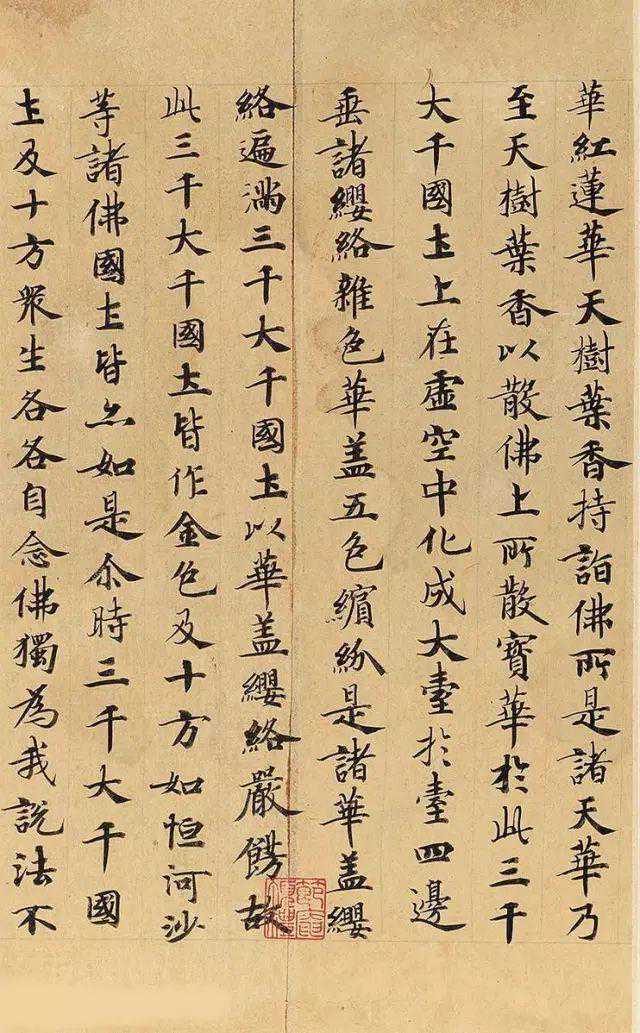 華紅蓮華天樹葉香持詣佛所是諸天華乃
至天樹葉香以散佛上所散寳華於此三千
大千國土上在虛空中化成大臺於臺四邊
垂諸纓絡雜色華盖五色繽紛是諸華盖纓
絡遍滿三千大千國土以華盖纓絡嚴餝故
此三千大千國土皆作金色及十方如恒河沙
等諸佛國土皆亦如是尒時三千大千國
土及十方衆生各各自念佛獨為我說法不